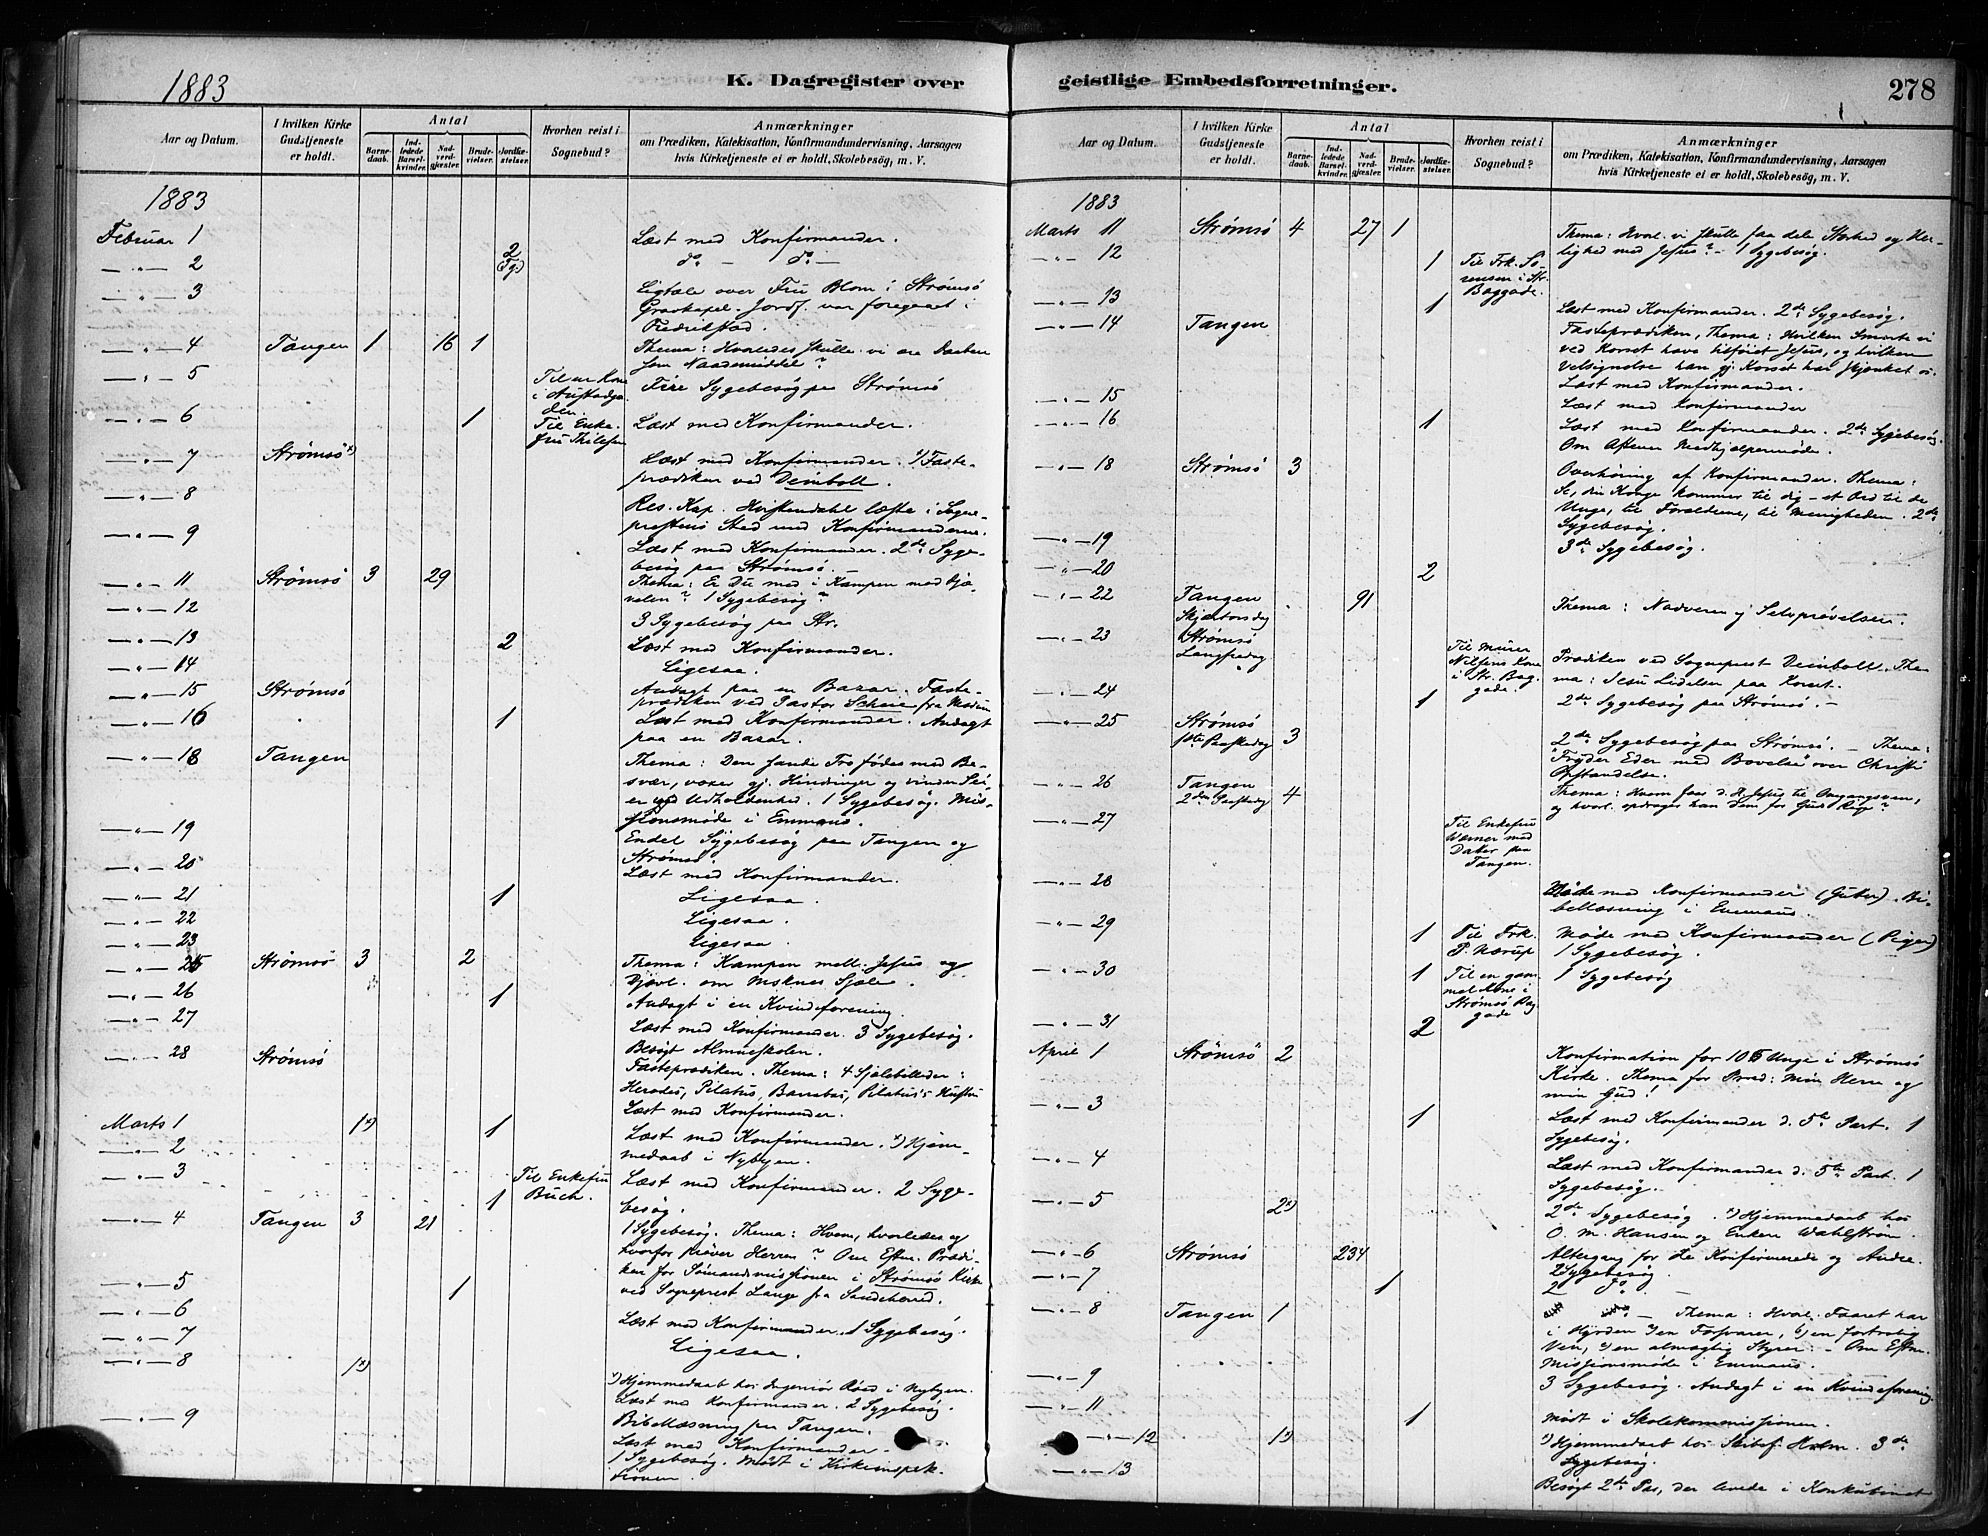 1883
K. Dagregister over
geistlige Embedsforretninger.
278
Aar og Datum.
I hvilken Kirke Gudstjeneste er holdt.
Antal
Barne-daab.
Ind-ledede Barsel-kvinder.
Nad-verd-gjæster.
Brude-vielser.
Jordfæ-stelser.
Hvorhen reist i Sognebud?
Anmærkninger
om Prædiken, Katekisation, Konfirmandundervisning, Aarsagen
hvis Kirketjeneste ei er holdt, Skolebesøg, m. V.
1883
Februar 1 Læst med Konfirmander.
—"— 2 2 do — do —
—"— 3 Ligtale over Fru Blom i Strømsö
Gravkapel. Jordf. var foregaaet i
Fredrikstad.
—"— 4 Tangen 1 16 1 Thema: Hvorledes skulle vi ære Daaben
som Naademiddel?
—"— 5 Til en Kone Fire Sygebesøg paa Strømsö
—"— 6 1 Til Enke- Læst med Konfirmander.
—"— 7 Strømsö x) Læst med Konfirmander. x) Faste-
prædiken ved Deinboll.
—"— 8 Res. Kap. læste i Sogne-
prestens Sted med Konfirmanderne.
—"— 9 Læst med Konfirmander. 2de Syge-
besøg paa Strømsö.
—"— 11 Strømsö 3 29 Thema: Er Du med i Kampen mod Djæ-
velen? 1 Sygebesøg
—"— 12 3 Sygebesøg paa Str.
—"— 13 2 Læst med Konfirmander.
—"— 14 Ligesaa.
—"— 15 Strømsö Andagt paa en Bazar. Faste-
prædiken ved Pastor Scheie fra
—"— 16 1 Læst med Konfirmander. Andagt
paa en Bazar.
—"— 18 Tangen Thema: Den sande Tro fødes med Be-
svær, voxe gj. Hindringer og vinder Sei-
er ved Udholdenhed. 1 Sygebesøg. Mis-
sionsmøde i Emmaus.
—"— 19 Endel Sygebesøg paa Tangen og
Strømsö.
—"— 20 Læst med Konfirmander.
—"— 21 1 Ligesaa.
—"— 22 Ligesaa.
—"— 23 Ligesaa.
—"— 25 Strømsö 3 2 Thema: Kampen mell. Jesus og
Djævl. om Msknes Sjæle.
—"— 26 1 Andagt i en Kvindeforening.
—"— 27 Læst med Konfirmander. 3 Sygebesøg.
Besøgt Almueskolen.
—"— 28 Strømsö Fasteprædiken. Thema: 4 Sjælebilleder:
Herodes, Pilatus, Barrabas, Pilatus's Hustru
Læst med Konfirmander.
Marts 1 1x) 1 Læst med Konfirmander. x) Hjem-
—"— 2 medaab i Nybyen.
—"— 3 1 Til Enkefru Buch. Læst med Konfirmander. 2 Syge-
besøg.
—"— 4 Tangen 3 21 1 Sygebesøg. Thema: Hvem, hvorledes og
hvorfor prøver Herren? Om Eftm. Prædi-
ken for Sømandsmissionen i Strømsö Kirke
ved Sogneprest Lange fra Sandeherred.
—"— 5 1
—"— 6 Læst med Konfirmander. 1 Sygebesøg.
—"— 7 Ligesaa.
—"— 8 1x) x) Hjemmedaab hos Ingeniør Röed i Nybyen.
Læst med Konfirmander. 2 Sygebesøg.
Bibellæsning paa Tangen.
—"— 9 Læst med Konfirmander.
1 Sygebesøg. Mødt i Kirkeinspek-
tionen.
Aar og Datum.
I hvilken Kirke Gudstjeneste er holdt.
Antal
Barne-daab.
Ind-ledede Barsel-kvinder.
Nad-verd-gjæster.
Brude-vielser.
Jordfæ-stelser.
Hvorhen reist i Sognebud?
Anmærkninger
om Prædiken, Katekisation, Konfirmandundervisning, Aarsagen
hvis Kirketjeneste ei er holdt, Skolebesøg, m. V.
1883
Marts 11 Strømsö 4 27 1 Thema: Hvorl. vi skulle faa dele Storhed og Her-
lighed med Jesus? — 1 Sygebesøg.
—"— 12 1 Til Frk. Sö-
rensen i Str.
Baggade.
—"— 13 1 Læst med Konfirmander. 2de Sygebesøg.
—"— 14 Tangen Fasteprædiken, Thema: Hvilken Smerte vi
ved Korset have tilføiet Jesus, og hvilken
Velsignelse han gj. Korset har skjænket os.
Læst med Konfirmander.
—"— 15 Læst med Konfirmander
—"— 16 1 Læst med Konfirmander. 2de Sygebesøg.
Om Aftenen Medhjælpermøde.
—"— 18 Strømsö 3 Overhøring af Konfirmander. Thema:
Se, din Konge kommer til dig — et Ord til de
Unge, til Forældrene, til Menigheden. 2de
Sygebesøg.
—"— 19 3de Sygebesøg.
—"— 20 2
—"— 22 Tangen Skjærtorsdag 91 Thema: Nadveren og Selvprøvelsen.
—"— 23 Strømsö Langfredag Til Murer
Nilsens Kone
i Str. Bag-
gade. Prædiken ved Sogneprest Deinboll. The-
ma: Jesu Lidelser paa Korset.
—"— 24 1 2de Sygebesøg paa Strømsö. —
—"— 25 Strømsö 1ste Paaskedag 3 2de Sygebesøg paa Strømsö. — Thema:
"Fryder Eder med Bævelse" over Christi
Opstandelse.
—"— 26 Tangen 2den Paaskedag 4 Thema: Hvem faar d. H. Jesus til Omgangsven,
og hvorl. opdrager han dem for Guds Rige?
—"— 27 Til Enkefru
Wærner med
Datter paa
Tangen.
—"— 28 Møde med Konfirmander (Gutter). Bi-
bellæsning i Emmaus.
—"— 29 1 Til Frk.
P. Nærup Møde med Konfirmander (Piger)
1 Sygebesøg.
—"— 30 1 Til en gam-
mel Kone i
Strømsö Bag-
gade 1 Sygebesøg
—"— 31 2
April 1 Strömsö 2 Konfirmation for 106 Unge i Strömsö
Kirke. Thema for Præd: Min Herre og
min Gud!
—"— 3 1 Læst med Konfirmander d. 5te Part. 1
Sygebesøg.
—"— 4 Læst med Konfirmander d. 5te Part. 1
Sygebesøg.
—"— 5 2x) 2de Sygebesøg. x) Hjemmedaab hos
O. M. Hansen og Enken Wahlström.
—"— 6 Strømsö 234 Altergang for de Konfirmerede og Andre.
2 Sygebesøg.
—"— 7 1 2 do —
—"— 8 Tangen 1 Thema: Hvorl. Faaret har
i Hyrden 1) en Forsvarer, 2) en fortrolig
Ven, 3) en almægtig Styrer. — Om Eftm.
Missionsmøde i Emmaus.
—"— 9 3 Sygebesøg. Andagt i en Kvindeforening.
—"— 11 1 Mødt i Skolekommissionen.
—"— 12 1x) x) Hjemmedaab hos Skibsf. Holm. 3de
Sygebesøg.
—"— 13 Besøgt 2de Par, der levede i Konkubinat